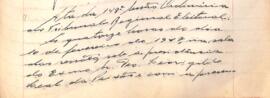 Ata da 149ª sessão Ordinária
do Tribunal Regional Eleitoral.
As quatorze horas do dia
de fevereiro de 1947, na sala
das sessões, sob a presidência
do Exmo. Sr. Des.
Leal da e com a presença